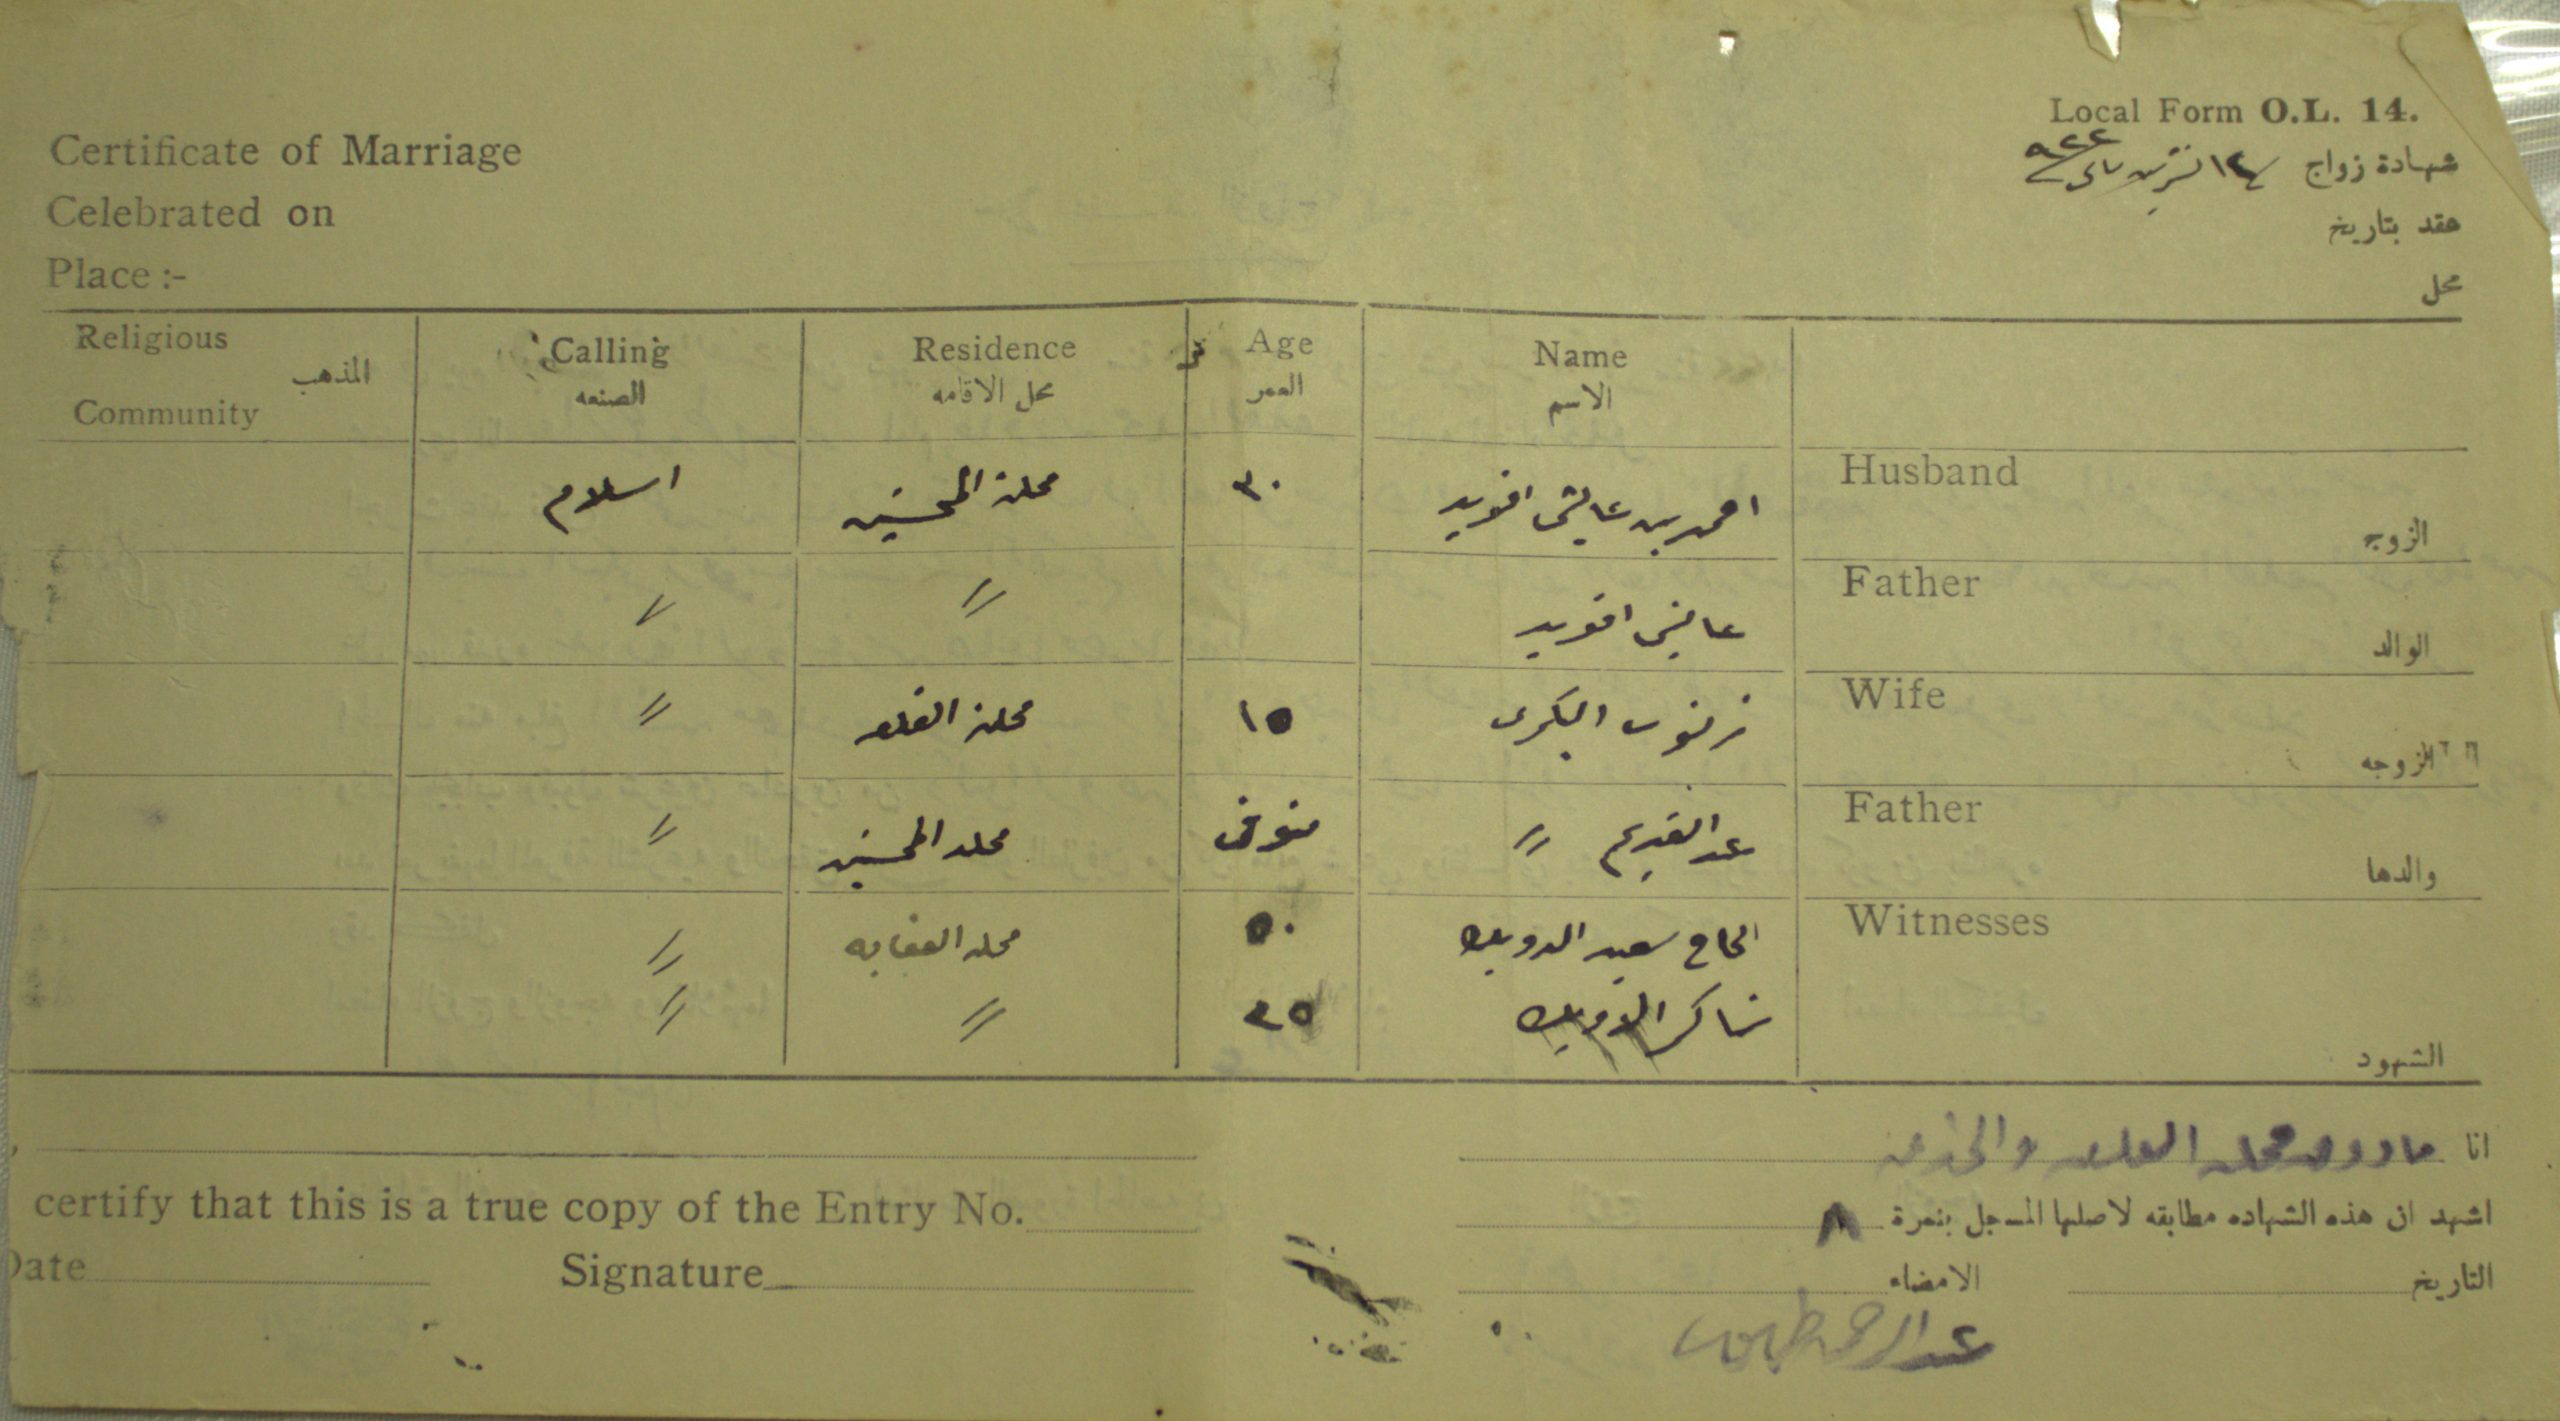 Local Form O.L. 14.
Certificate of Marriage
شهادة زواج ١٤ تشرين ثاني ٩٢٢
Celebrated on
عقد بتاريخ
Place :-
محل
Religious Community المذهب
Calling الصنعه
Residence محل الاقامه
Age العمر
Name الاسم
Husband الزوج
احمد بن عايش افويد ٣٠ محلة المحسنين اسلام
Father الوالد
عايش افويد〃 〃
Wife الزوجه
البكري ١٥ محلة القلعه 〃
Father والدها
〃 متوفى محلة المحسنين 〃
Witnesses الشهود
الحاج سعيد الدويك ٥٠ محلة العقابه 〃
شاكر الدويك ٣٥ 〃 〃
انا مأذون محلة القلعه
certify that this is a true copy of the Entry No.
اشهد ان هذه الشهاده مطابقه لاصلها المسجل بنمرة ٨
Date Signature
التاريخ الامضاء